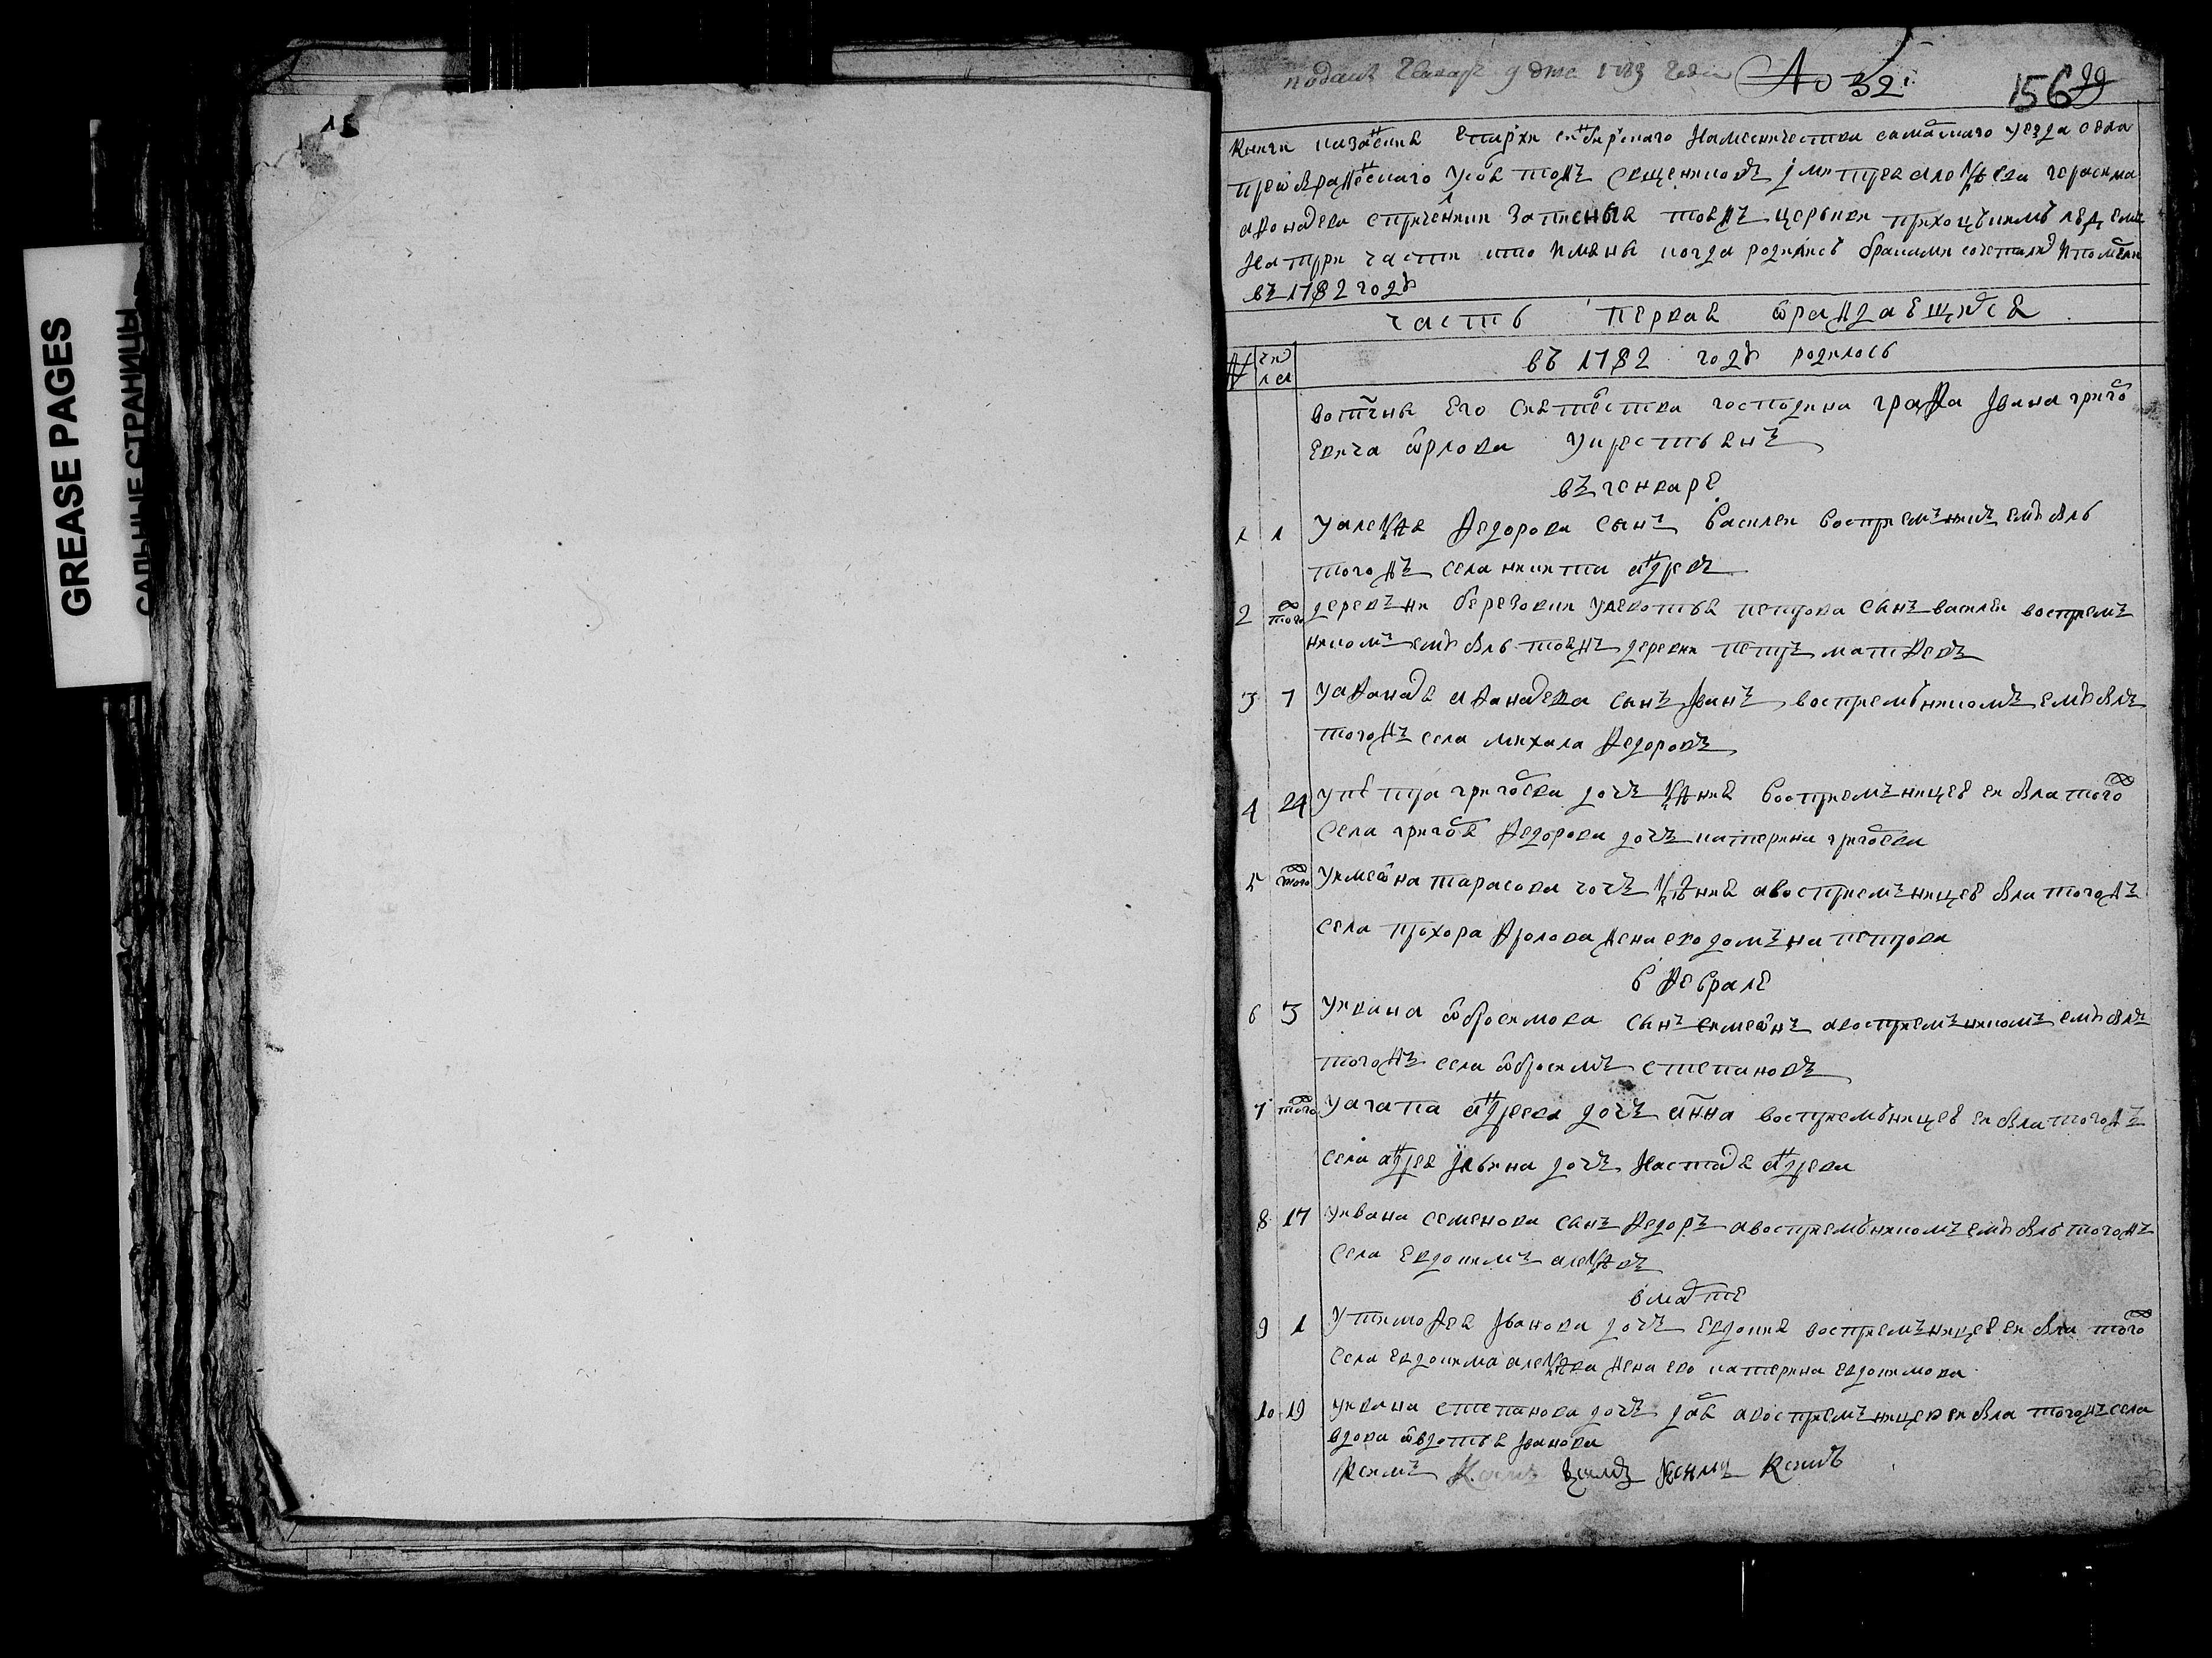 GREASE PAGES
САЛЬНЫЕ СТРАНИЦЫ
подана Генваря 9 дня 1783 года № 32 156
книги казанския епархии синбирскаго наместничества самарскаго уезда села
преображенскаго усолья тожъ священниковъ Димитрея алеѯеева герасима
афонасева с причетники записныя тояжъ церькви приходцкимъ людемъ
на три части кто имяны когда родились бракомъ сочетались и померли
въ 1782 году
часть первая о раждаещихся
№ числа
въ 1782 году родилось
вотчины Его Сиятелства господина графа Івана григо
евича орлова у крестьянъ
въ генваре
1 1 у алеѯея федорова сынъ василеи восприемъникомъ ему былъ
тогожъ села никита андреевъ
2 того деревни березовки у леонтья петрова сынъ василеи восприемъ
никомъ ему былъ тояжъ деревни петръ матфеевъ
3 7 у афанася афанасева сынъ Іванъ восприемъникомъ ему былъ
тогожъ села михаила федоровъ
4 24 у петра григорева дочь ѯения восприемъницею еи была того
села григоря федорова дочь катерина григорева
5 того у симеона тарасова дочь ѯения а восприемъницею была тогожъ
села прохора фролова жена ево домъна петрова
в феврале
6 3 у ивана обросимова сынъ симеонъ а восприемъникомъ ему былъ
тогожъ села обросимъ степановъ
7 того у агапа андреева дочь анна восприемъницею еи была тогожъ
села андрея Ільина дочь Настася андреева
8 17 у ивана семенова сынъ федоръ а восприемъникомъ ему былъ тогожъ
села евдокимъ алеѯеевъ
в марте
9 1 у тимофея Іванова дочь евдокия восприемъницею еи была того
села евдокима алеѯеева жена ево катерина евдокимова
10 19 у ивана степанова дочь дарья а восприемъницею еи была тогожъ села
вдова овдотья Іванова